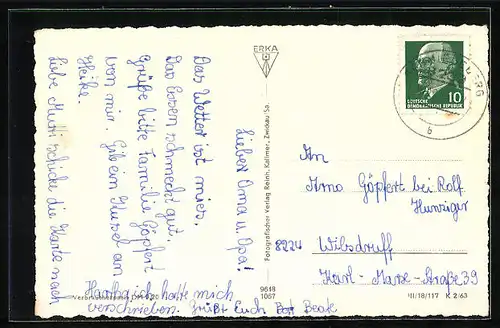 Lieber Oma u. Opa!
Das Wetter ist mies.
Das Essen schmeckt gut.
Grüße bitte Familie Göpfert
von mir. Gib ein Kussel an
Heike.
Liebe Mutti schicke die Karte nach
Hartha ich hatte mich
verschrieben. Grüßt Euch Beate
ERKA
Fotografischer Verlag Reinh. Kallmer, Zwickau-Sa.
9618
1067
DEUTSCHE
DEMOKRATISCHE REPUBLIK
10
b
An
Arno Göpfert bei Rolf
Hunziger
8224 Wilsdruff
Karl-Marx-Straße 39
III/18/117 K 2/63